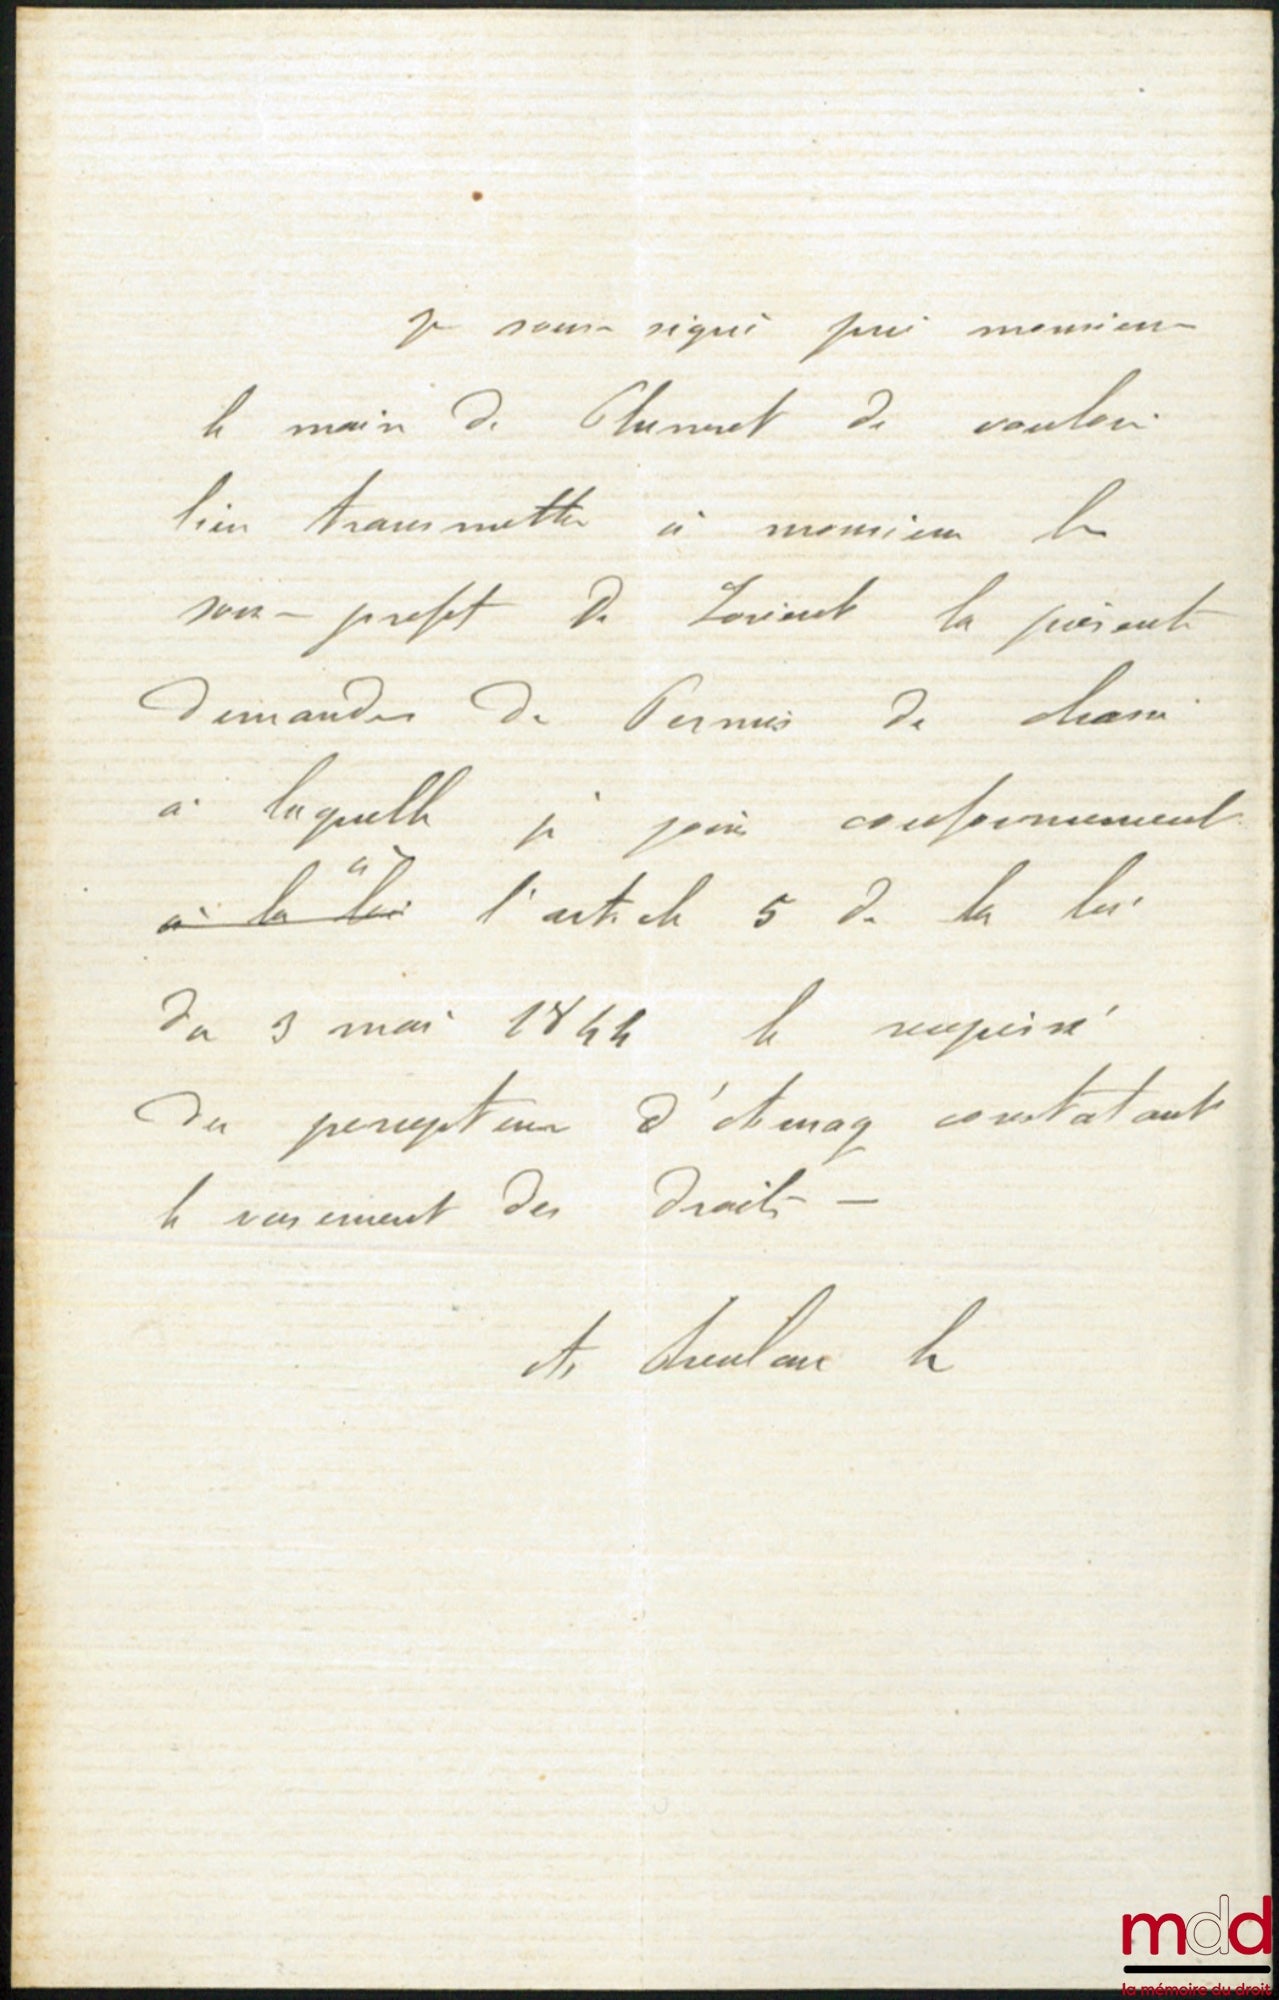 je sous signé prie monsieur
le maire de Plumeret de vouloir
bien transmettre à monsieur le
sous-prefet de Lorient la présente
demande de Permis de chasse
à laquelle je joins conformement
à la loi à l'article 5 de la loi
du 3 mai 1844 le recepissé
du percepteur d' constatant
le versement des droits —
mdd
la mémoire du droit